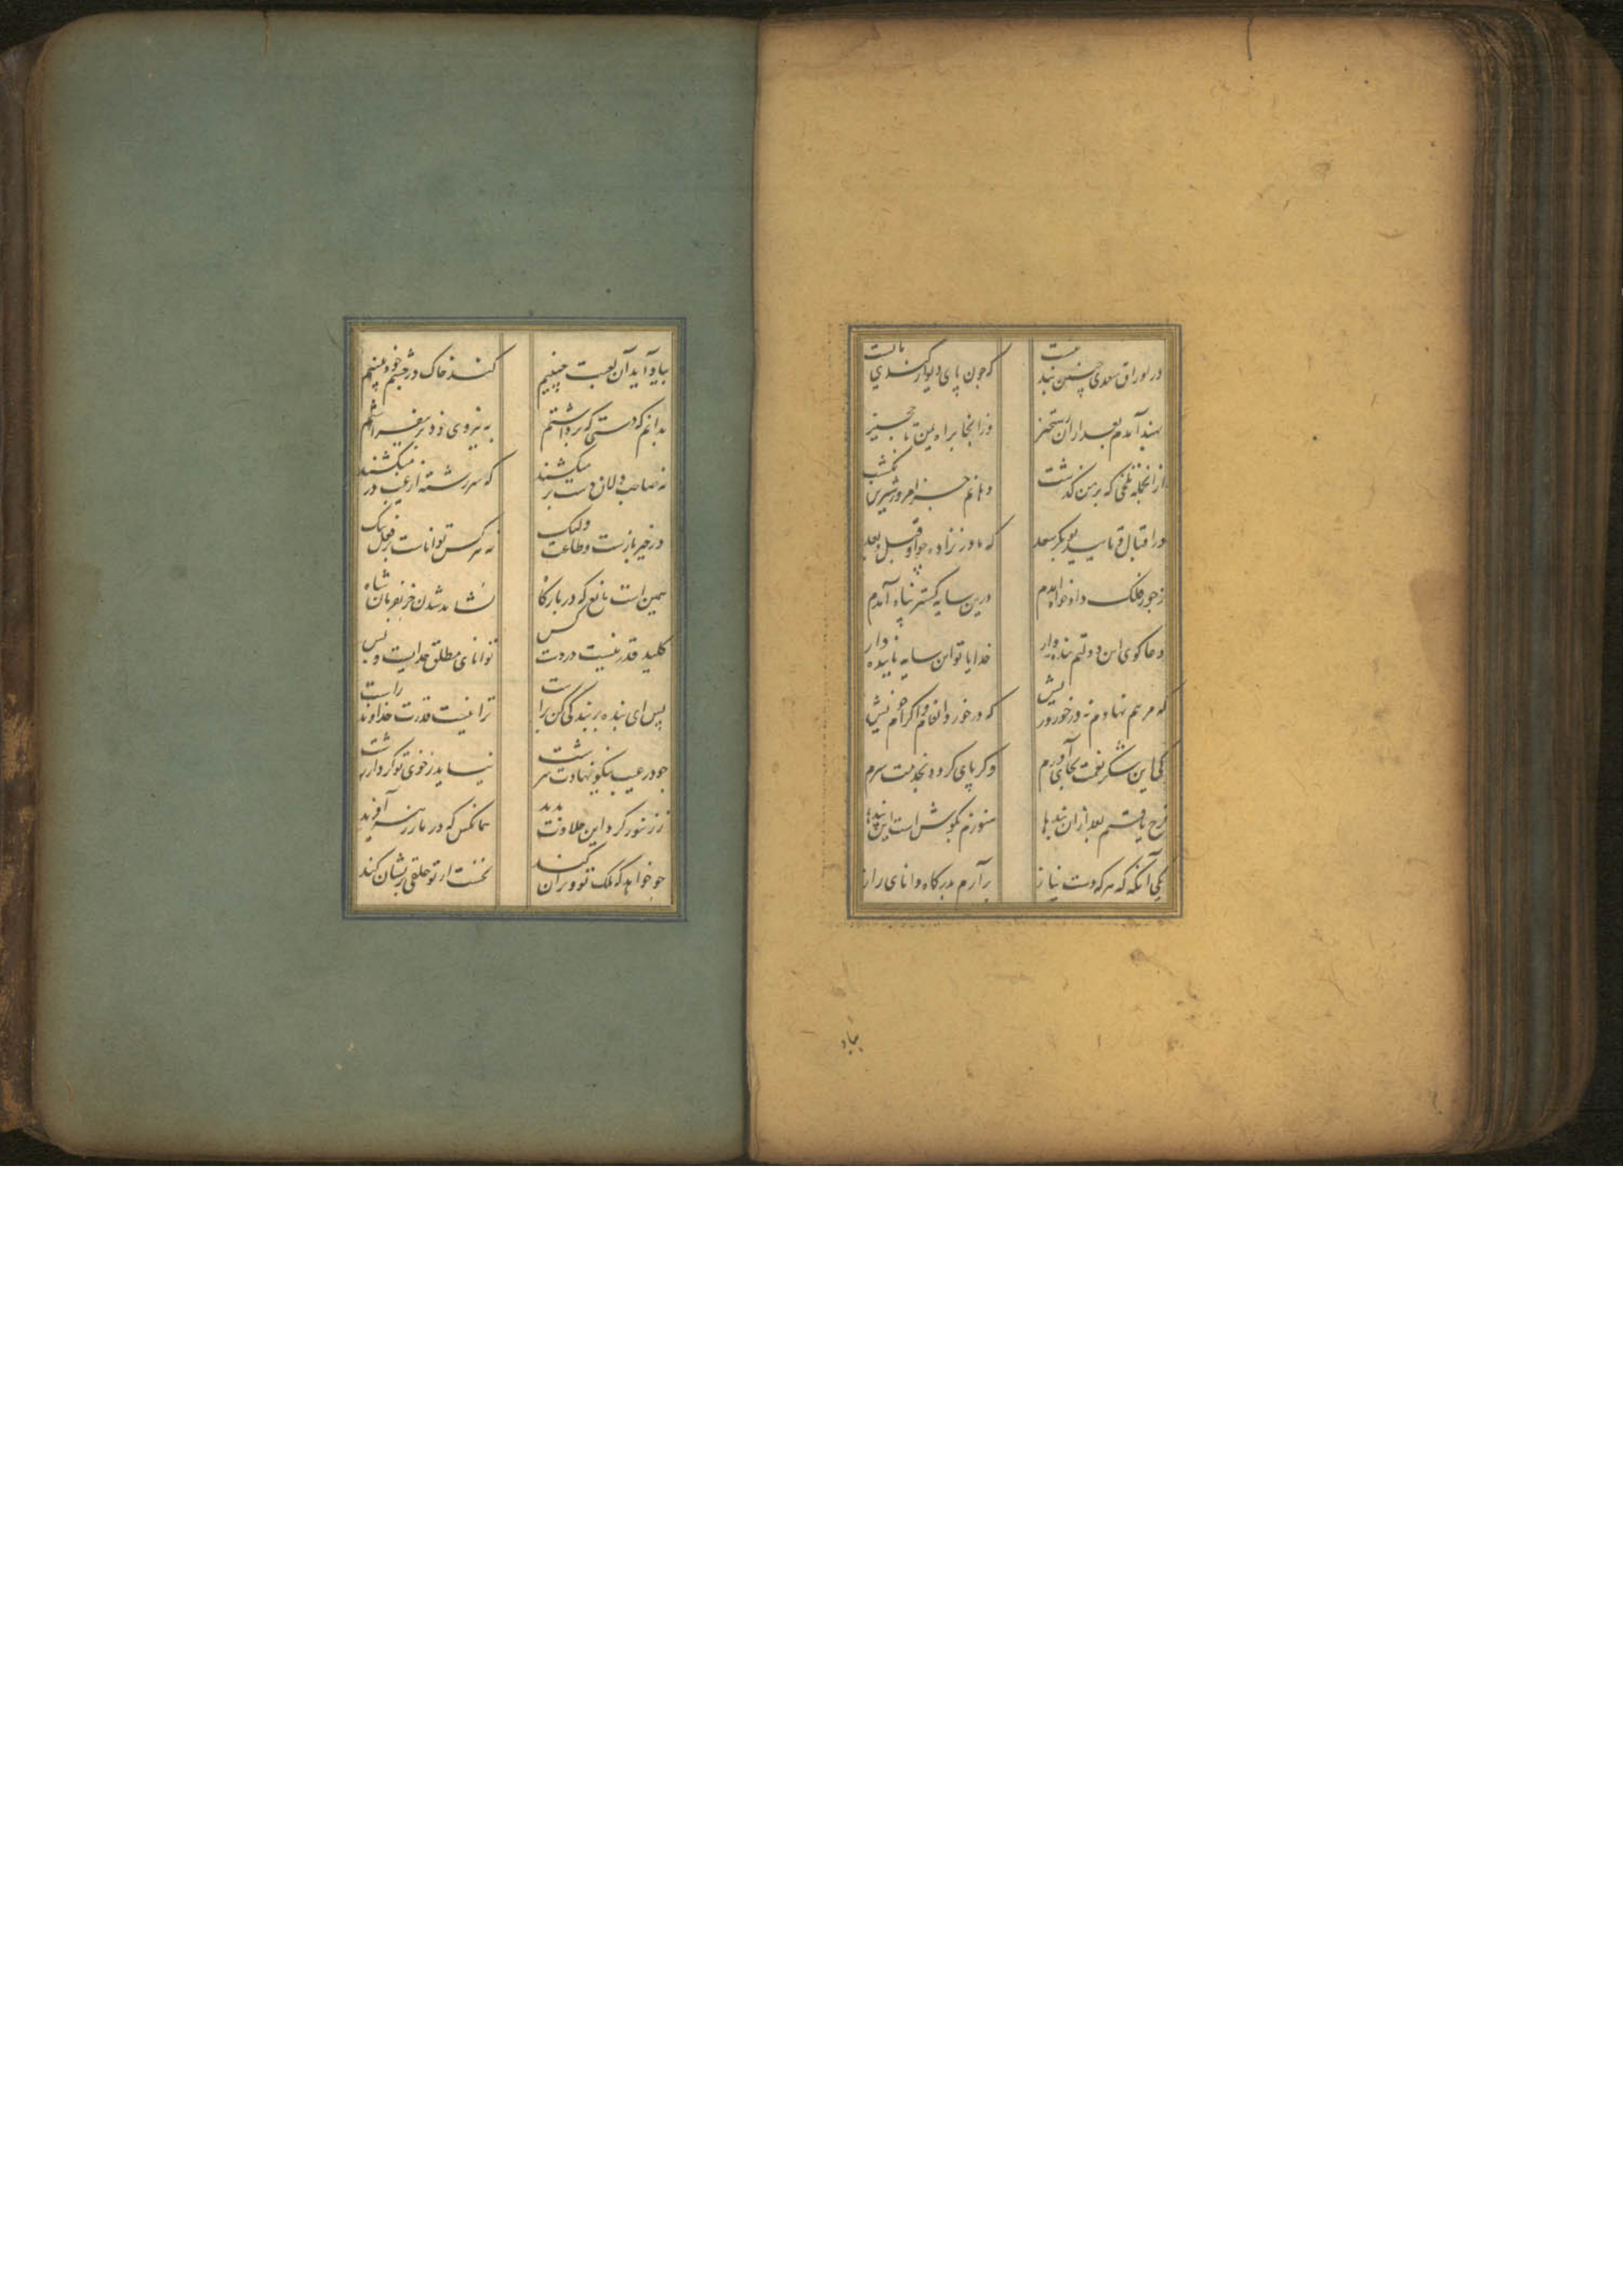 در اوراق سعدی چنین پند نیست که چون پای دیوار کندی مایست
بهند آمدم بعد ازان رستخیز وز انجا براه یمن تا حجیز
از انجمله تلخی که بر من گذشت دهانم جز امروز شیرین نکشت
در اقبال و تایید بوبکر سعد که مادر نزاده چو او قبل و بعد
ز جور فلک داد خواه آمدم درین سایه گستر پناه آمدم
دعا کوی این دولتم بنده وار خدایا تو این سایه پاینده دار
که مرهم نهادم نه در خورد ریش که در خورد انعام و اکرام خویش
کی این شکر نعمت بجای آورم وکر پای کردد بخدمت سرم
فرج یافتم بعد ازان بندها هنوزم بکوش است این پندها
یکی آنکه که هرکه دست نیاز برآرم بدرکاه دانای راز
بیاد
بیاد آید آن لعبت چینیم کند خاک در چشم خود بینیم
بدانم که دستی که برداشتم به نیروی خود بر نیفراشتم
نه صاحب دلان دست بر میکشند که سر رشته از غیب در میکشند
در خیر بازست و طاعت ولیک نه هر کس تواناست بر فعل نیک
همین است مانع که در بارکاه نشاید شدن جز بفرمان شاه
کلید قدر نیست در دست کس توانای مطلق خدایست و بس
پس ای بنده بر بندکی کن راست ترا نیست قدرت خداوند راست
چو در غیب نیکو نهادت سرشت نیاید ز خوی تو کردار زشت
ز زنبور کرد این حلاوت پدید همانکس که در مار زهر آفرید
چو خواهد که ملک تو ویران کند نخست از تو خلقی پریشان کند